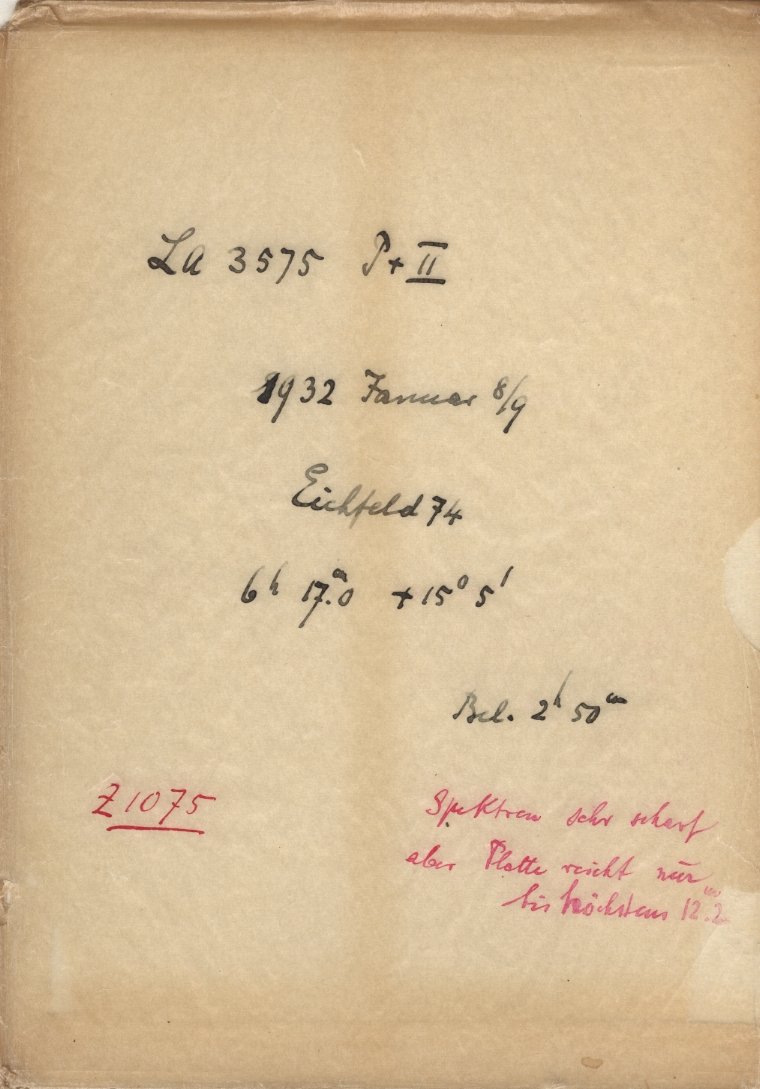 La 3575 P+II
1932 Januar 8/9
Eichfeld 74
6h 17.m0 +15° 5'
Bel. 2h 50m
Z 1075
Spektren sehr scharf
aber Platte reicht nur
bis höchstens 12.m2